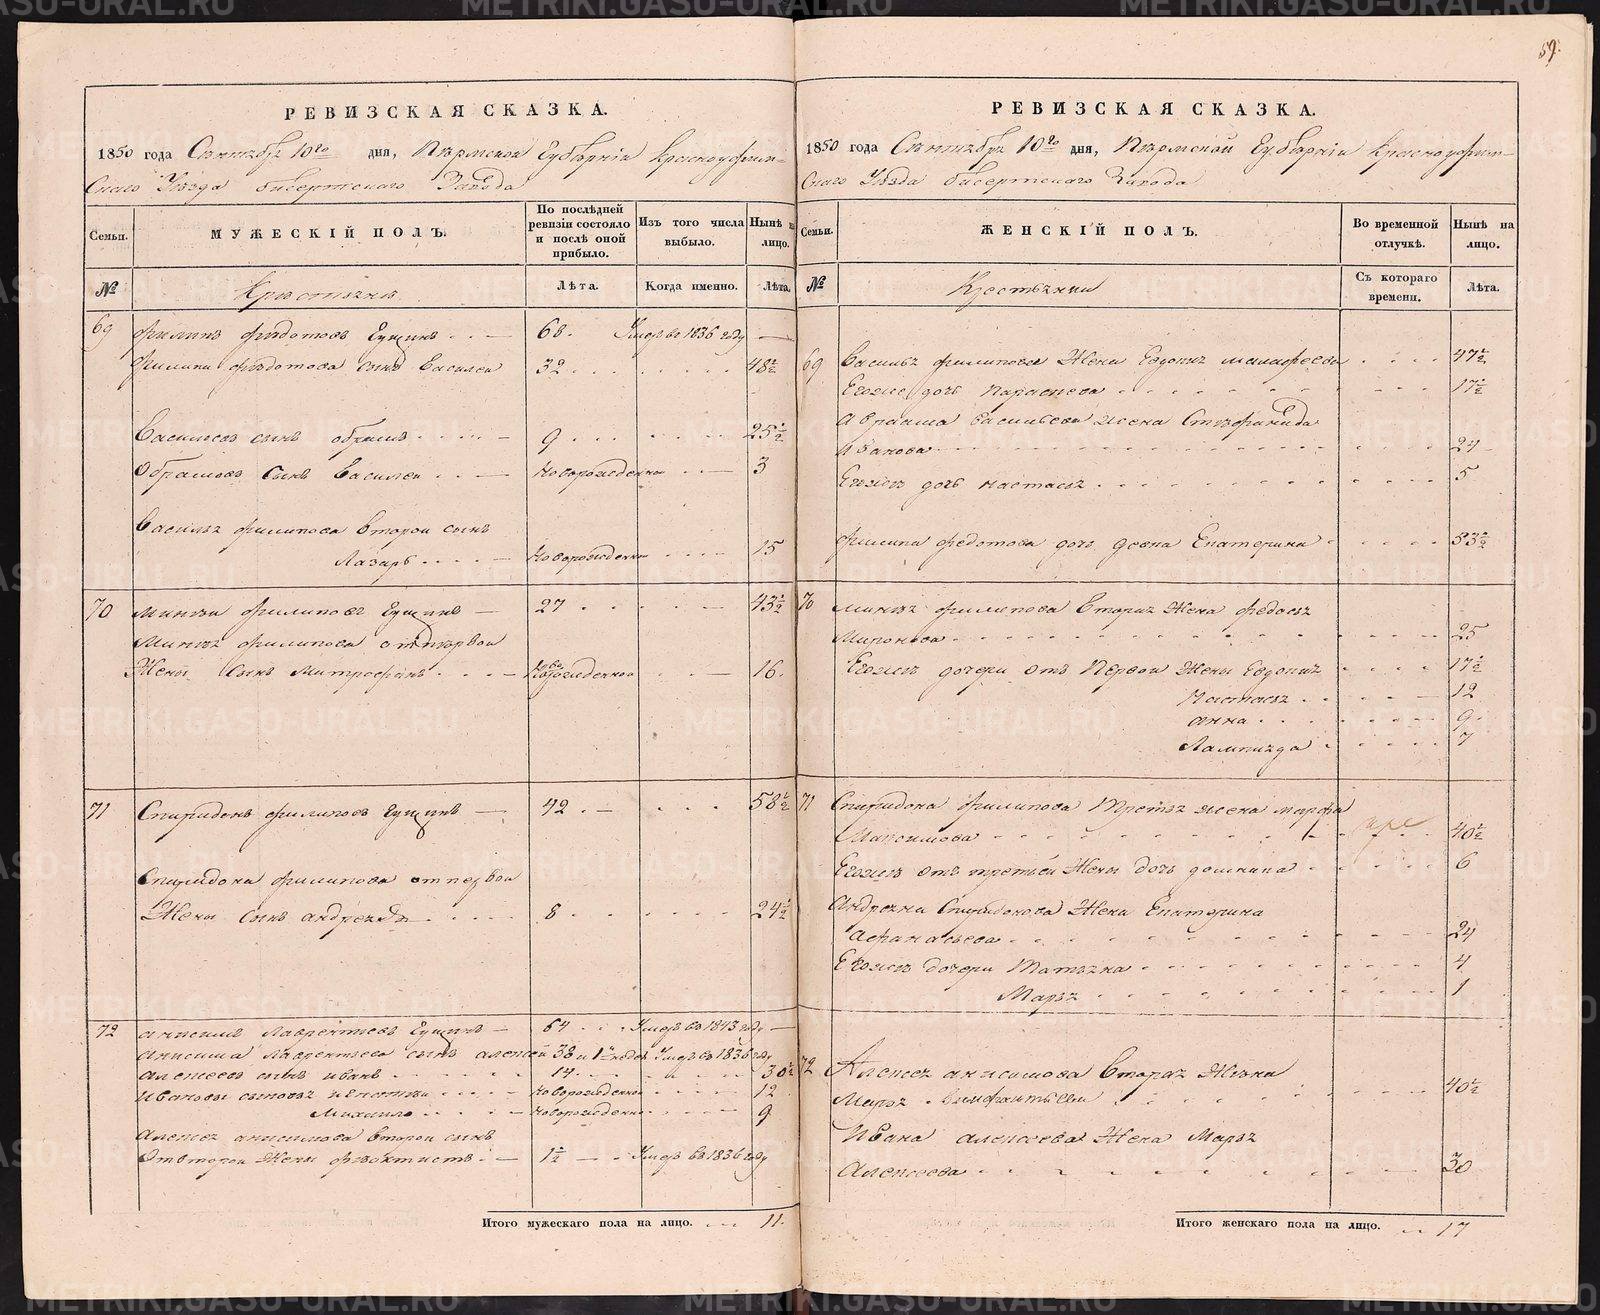 59.
РЕВИЗСКАЯ СКАЗКА.
1850 года Сентября 10го дня, Пермской Губернiи Красноуфим-
скаго Уезда бисертскаго Завода
Семьи.
МУЖЕСКIЙ ПОЛЪ.
По послѣдней ревизiи состояло и послѣ оной прибыло.
Изъ того числа выбыло.
Нынѣ на лицо.
№
Крестьяне
Лѣта.
Когда именно.
Лѣта.
69 Филипъ Федотовъ Ерщинъ 68. Умеръ во 1836 году
Филипа Федотова сынъ Василеи 32 48½
Васильевъ сынъ Обрамъ 9 25½
Обрамовъ сынъ Василеи Новорожденны 3
Василья Филипова второи сынъ
Лазарь Новорожденны 15
70 Филиповъ 27 43½
Филипова отпервои
Жены Сынъ Митрофанъ Новорожденнои 16.
71 Спиридонъ Филиповъ 42 58½
Спиридона Филипова отпервои
Жены сынъ Андреянъ 8 24½
72 Анисимъ Лаврентьевъ 64 Умеръ въ 1843 году
Анисима Лаврентьева сынъ Алексеи 38 Умеръ въ 1836 году
Алексеевъ сынъ Иванъ 14 30½
Ивановы сыновья Новорожденны 12
Михаило Новорожденны 9
Алексея Анисимова второи сынъ
Отвторои Жены Феоктистъ 1½ Умеръ въ 1836 году
Итого мужескаго пола на лицо. 11.
РЕВИЗСКАЯ СКАЗКА.
1850 года Сентября 10го дня, Пермской Губернiи Красноуфим-
скаго Уезда бисертскаго Завода
Семьи.
ЖЕНСКIЙ ПОЛЪ.
Во временной отлучкѣ.
Нынѣ на лицо.
№
Крестьянки
Съ котораго времени.
Лѣта.
69 Василья Филипова Жена Евдопья Малафеева 47½
Егоже дочь Парасковья 17½
Авраама Васильева жена Стефанида
Иванова 24
Егоже дочь Настасья 5
Филипа Федотова дочь девка Екатерина 53½
70 Филипова вторая Жена Федосья
Миронова 25
Егоже дочери отъ Первои Жены Евдопья 17½
Настасья 12
Анна 9.
Лампияда 7
71 Спиридона Филипова Третья жена Марфа
Максимова 40½
Егоже отъ третьей Жены дочь домнина 6
Андреяна Спиридонова Жена Екатерина
Афанасьева 24
Егоже дочери Татьяна 4
Марья 1
72 Алексея Анисимова Вторая Жена
Марья 40½
Ивана Алексеева Жена Марья
Алексеева 30
Итого женскаго пола на лицо. 17
METRIKI.GASO-URAL.RU